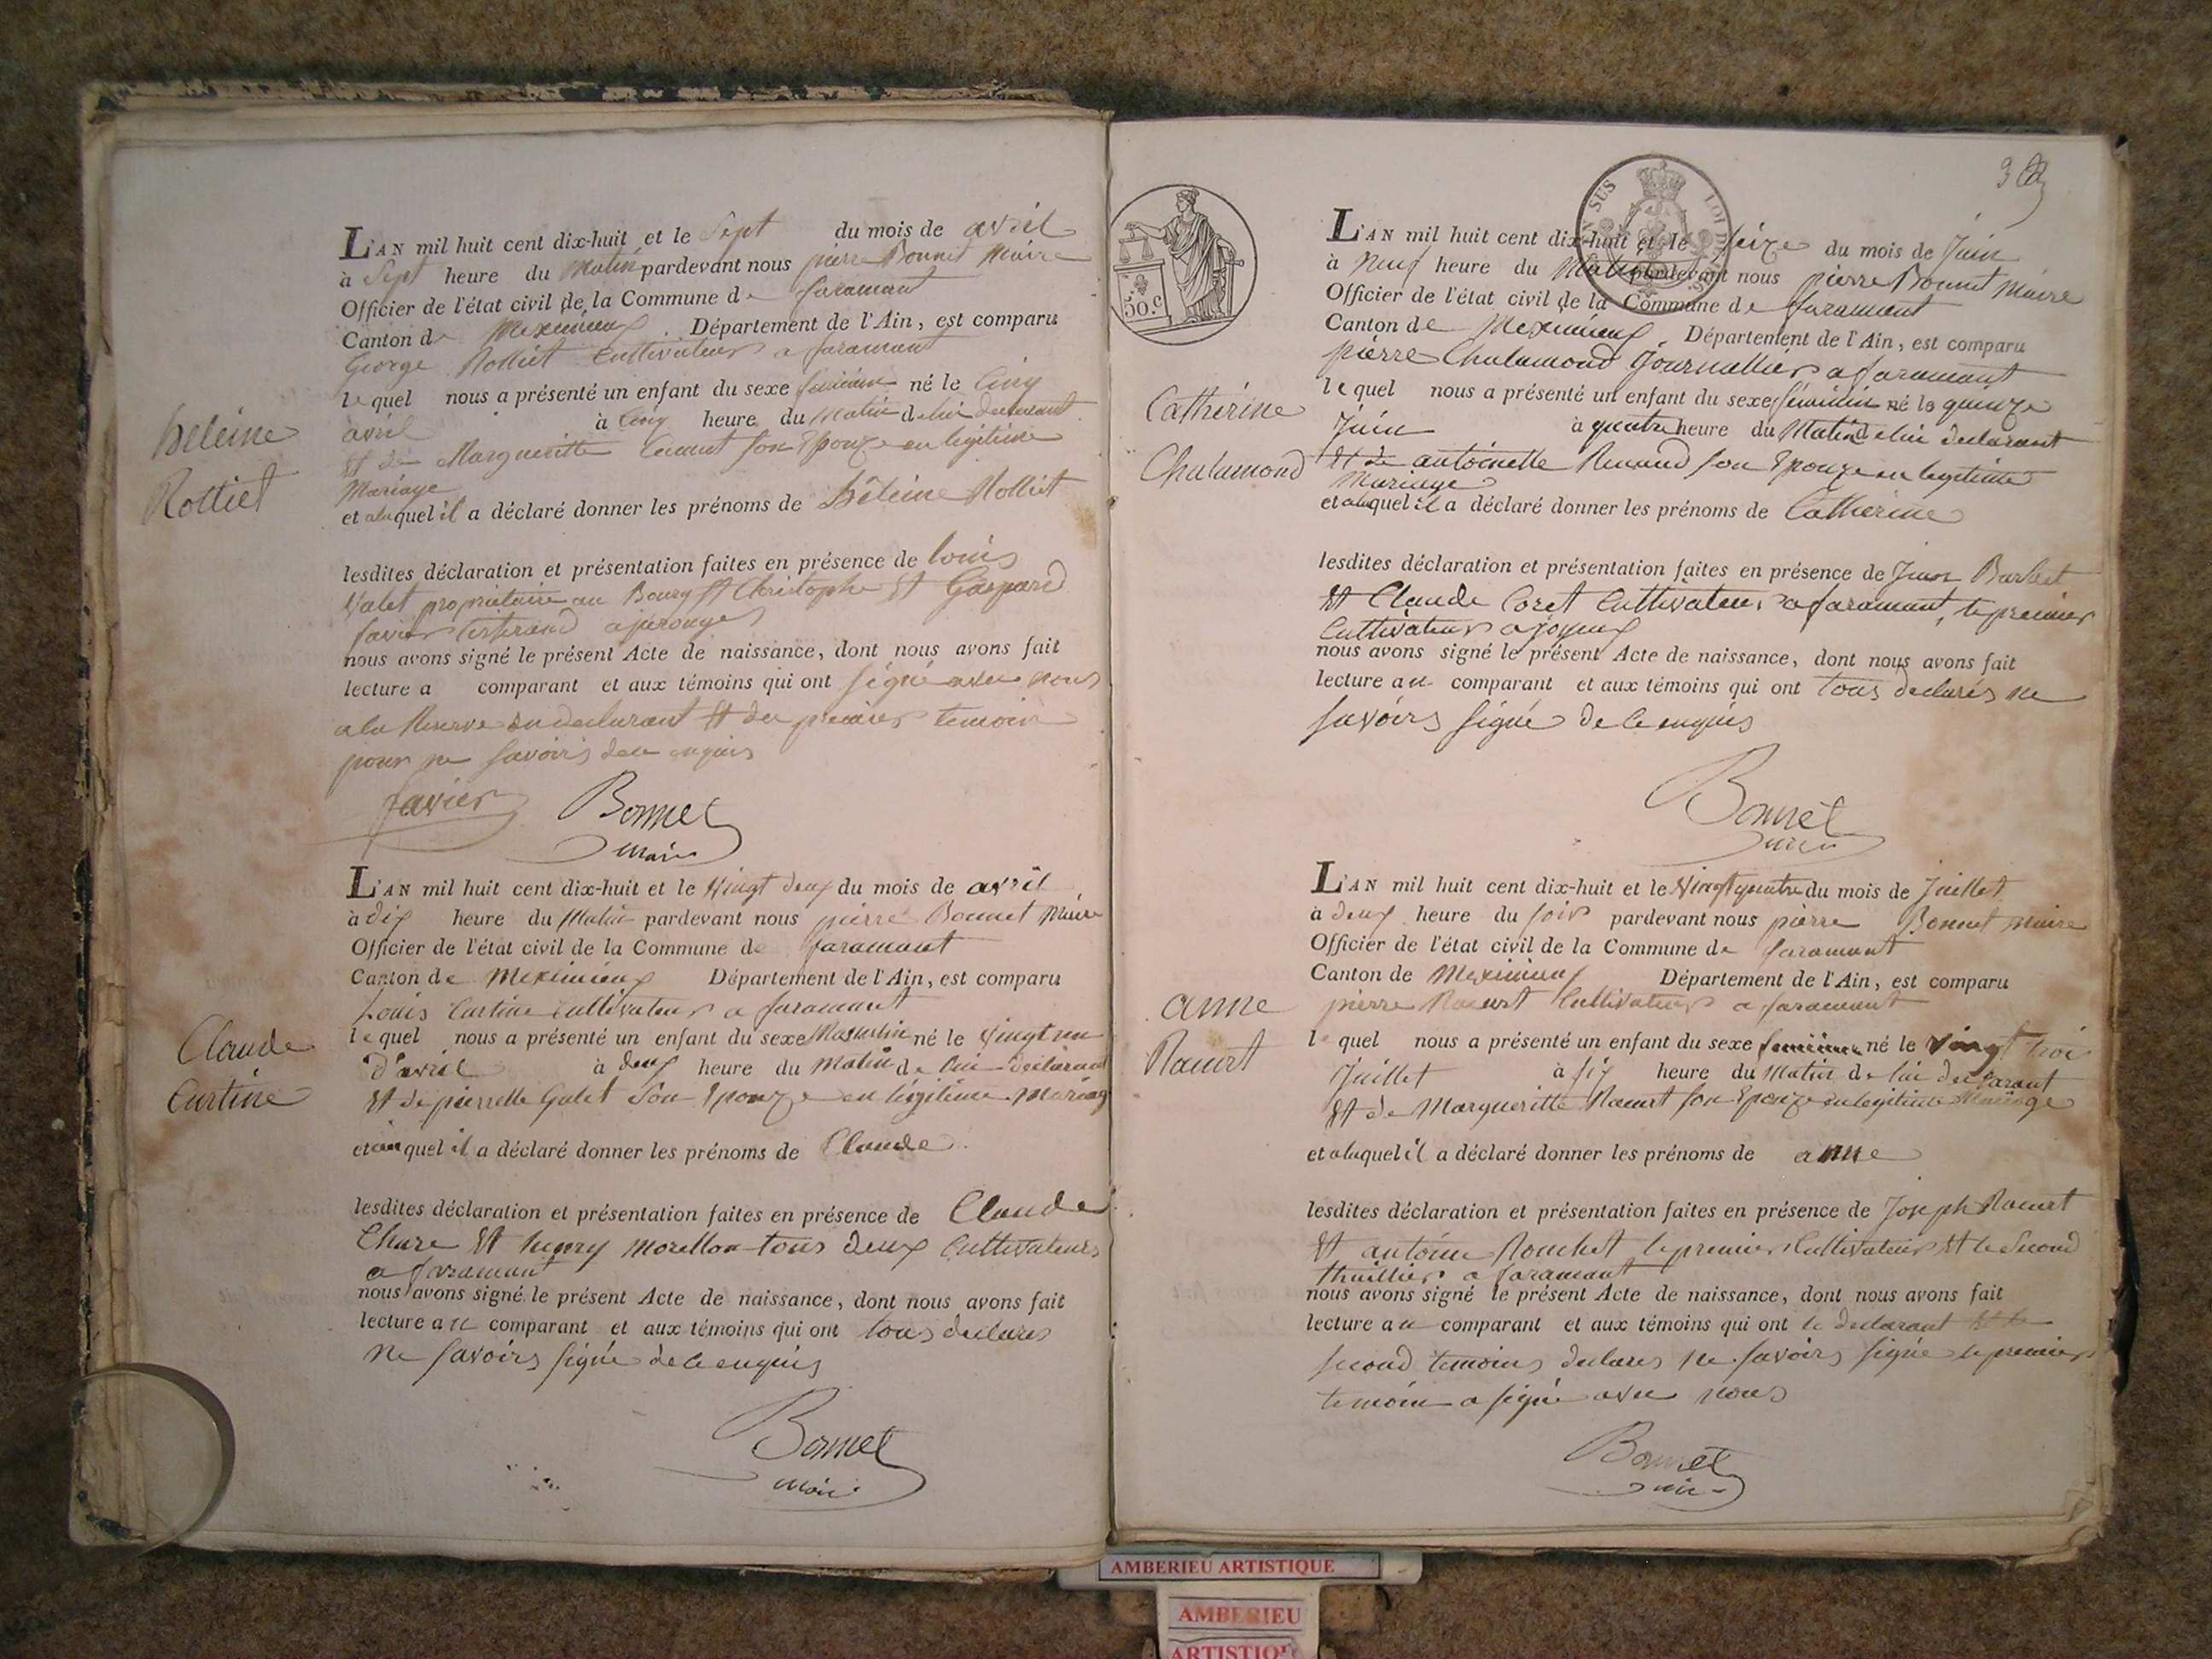 L'AN mil huit cent dix-huit et le Sept du mois de avril
à Sept heure du Matin pardevant nous pierre Bonnet Maire
Officier de l'état civil de la Commune de faramant
Canton de Meximieux . Département de l'Ain, est comparu
George Rolliet Cultivateur a faramant
lequel nous a présenté un enfant du sexe féminin né le Cinq
avril à Cinq heure du Matin de lui declarant
Et de Margueritte son Epouze en legitime
Mariage
et alaquel il a déclaré donner les prénoms de hêleine Rolliet
heleine
Rolliet
lesdites déclaration et présentation faites en présence de louis
Valet propriétaire au Bourg St Christophe Et Gaspard
favier a perouge
nous avons signé le présent Acte de naissance, dont nous avons fait
lecture a comparant et aux témoins qui ont signé avec nous
a la Reserve du declarant Et du premier temoin
pour ne savoirs de ce enquis
favier Bonnet
maire
L'AN mil huit cent dix-huit et le Vingt deux du mois de avril
à dix heure du Matin pardevant nous pierre Bonnet Maire
Officier de l'état civil de la Commune de faramant
Canton de Meximieux Département de l'Ain, est comparu
Louis Curtine Cultivateur a faramant
lequel nous a présenté un enfant du sexe Masculin né le Vingt un
d'avril à deux heure du Matin de lui declarant
Et de pierrette Galet Son Epouze en légitime Mariage
et auquel il a déclaré donner les prénoms de Claude
Claude
Curtine
lesdites déclaration et présentation faites en présence de Claude
Chare Et henry Morellon tous deux Cultivateurs
a faramant
nous avons signé le présent Acte de naissance, dont nous avons fait
lecture au comparant et aux témoins qui ont tous declarés
ne savoirs signé de ce enquis
Bonnet
maire
3
SUS LOI
50.c
L'AN mil huit cent dix-huit et le seize du mois de Juin
à Neuf heure du Matin pardevant nous pierre Bonnet Maire
Officier de l'état civil de la Commune de faramant
Canton de Meximieux Département de l'Ain, est comparu
pierre Chalamond Journallier a faramant
lequel nous a présenté un enfant du sexe féminin né le quinze
Juin à quatre heure du Matin de lui declarant
Et de antoinette Renand son Epouze en legitime
Mariage
et alaquel il a déclaré donner les prénoms de Catherine
Catherine
Chalamond
lesdites déclaration et présentation faites en présence de Jean Barbet
Et Claude Coret Cultivateur a faramant, le premier
Cultivateur a joyeux
nous avons signé le présent Acte de naissance, dont nous avons fait
lecture au comparant et aux témoins qui ont tous declarés ne
savoirs signé de ce enquis
Bonnet
maire
L'AN mil huit cent dix-huit et le Vingt quatre du mois de Juillet
à deux heure du soir pardevant nous pierre Bonnet Maire
Officier de l'état civil de la Commune de faramant
Canton de Meximieux Département de l'Ain, est comparu
pierre Racurt Cultivateur a faramant
lequel nous a présenté un enfant du sexe feminin né le Vingt trois
Juillet à six heure du Matin de lui declarant
Et de Margueritte Racurt son Epouze en legitime Mariage
et alaquel il a déclaré donner les prénoms de anne
anne
Racurt
lesdites déclaration et présentation faites en présence de Joseph Racurt
Et antoine Rouchet le premier Cultivateur Et le Second
thuillier a faramant
nous avons signé le présent Acte de naissance, dont nous avons fait
lecture au comparant et aux témoins qui ont le declarant Et le
second temoins declares ne savoirs signé le premier
temoin a signé avec nous
Bonnet
maire
AMBERIEU ARTISTIQUE
AMBERIEU
ARTISTIQUE